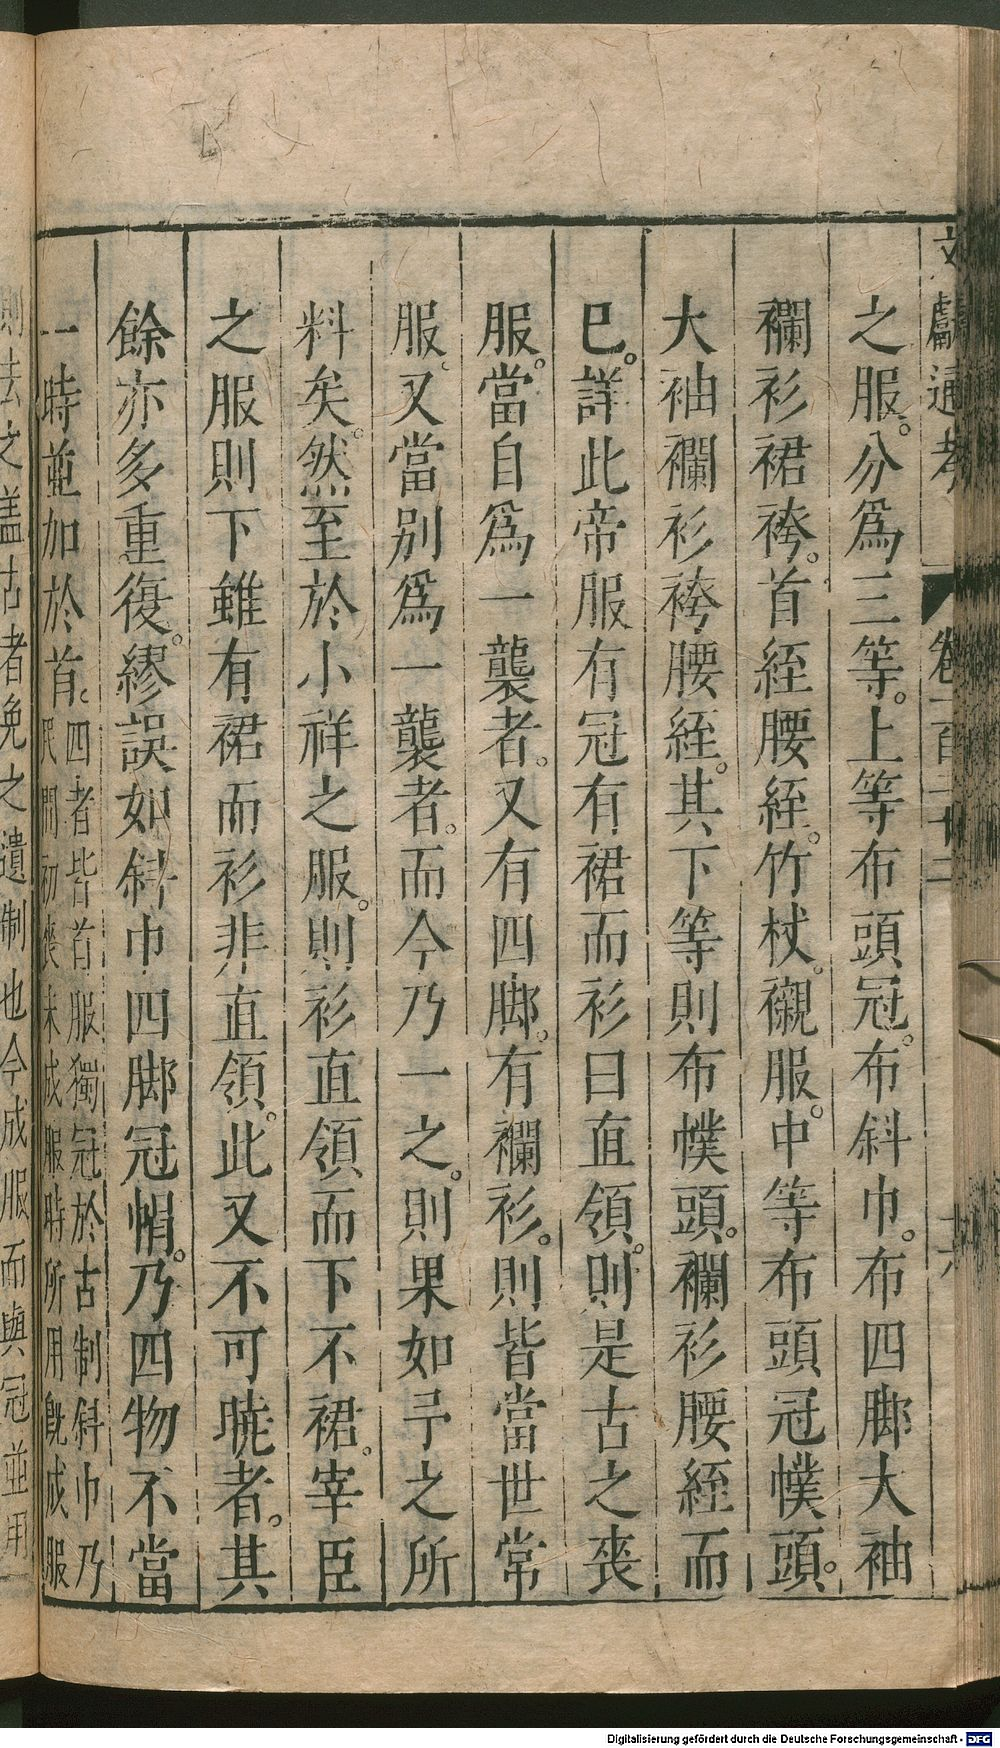 文獻通考 卷一百二十二 十六
之服。分爲三等。上等布頭冠。布斜巾。布四脚大袖
襴衫裙袴。首絰腰絰。竹杖。襯服。中等布頭冠幞頭。
大袖襴衫袴腰絰。其下等則布幞頭。襴衫腰絰而
已。詳此帝服有冠有裙而衫曰直領。則是古之喪
服。當自爲一襲者。又有四脚。有襴衫。則皆當世常
服、又當别爲一襲者。而今乃一之。則果如予之所
料矣。然至於小祥之服。則衫直領而下不裙。宰臣
之服則下雖有裙而衫非直領。此又不可曉者。其
餘亦多重復。繆誤如斜巾四脚冠帽。乃四物不當
一時並加於首。四者皆首服獨冠於古制斜巾乃
民間初喪未成服時所用旣成服
則去之盖古者免之遺制也今成服而與冠並用
Digitalisierung gefördert durch die Deutsche Forschungsgemeinschaft - DFG